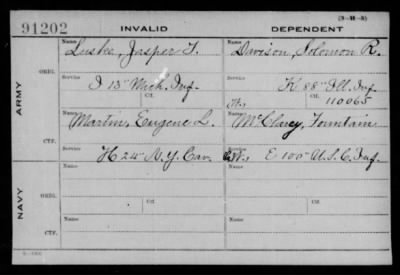 (3-M-8)
91202 INVALID DEPENDENT
Name Name
Luske, Jasper T. Davison, Solomon R.
ORIG. Service Service
I 13" Mich. Inf. K 88" Ill. Inf.
Ctf. Ctf.
110065
ARMY
Name Name
Martin, Eugene L. McClarey, Fountain
CTF. Service Service
H 24" N.Y. Cav. E 100" U.S.C. Inf.
NAVY
Name Name
ORIG. Service Service
Ctf. Ctf.
Name Name
CTF. Service Service